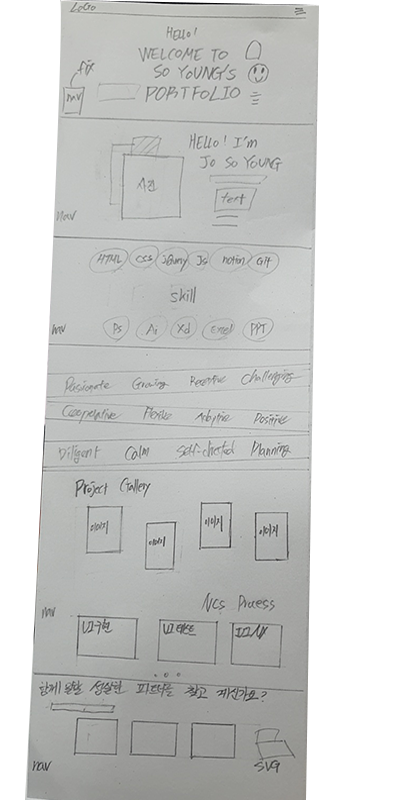 LOGO
HELLO!
WELCOME TO
SO YOUNG'S
PORTFOLIO
fix
nav
HELLO! I'M
JO SO YOUNG
사진
text
nav
HTML CSS JQuery Js notion Git
skill
Ps Ai Xd Excel PPT
nav
Passionate Growing Receptive Challenging
Cooperative Flexible Adaptive Positive
Diligent Calm Self-directed Planning
Project Gallery
이미지 이미지 이미지 이미지
Ncs Process
nav
UI구현 UI테스트
함께 일할 성실한 찾고 계신가요?
nav
SVG